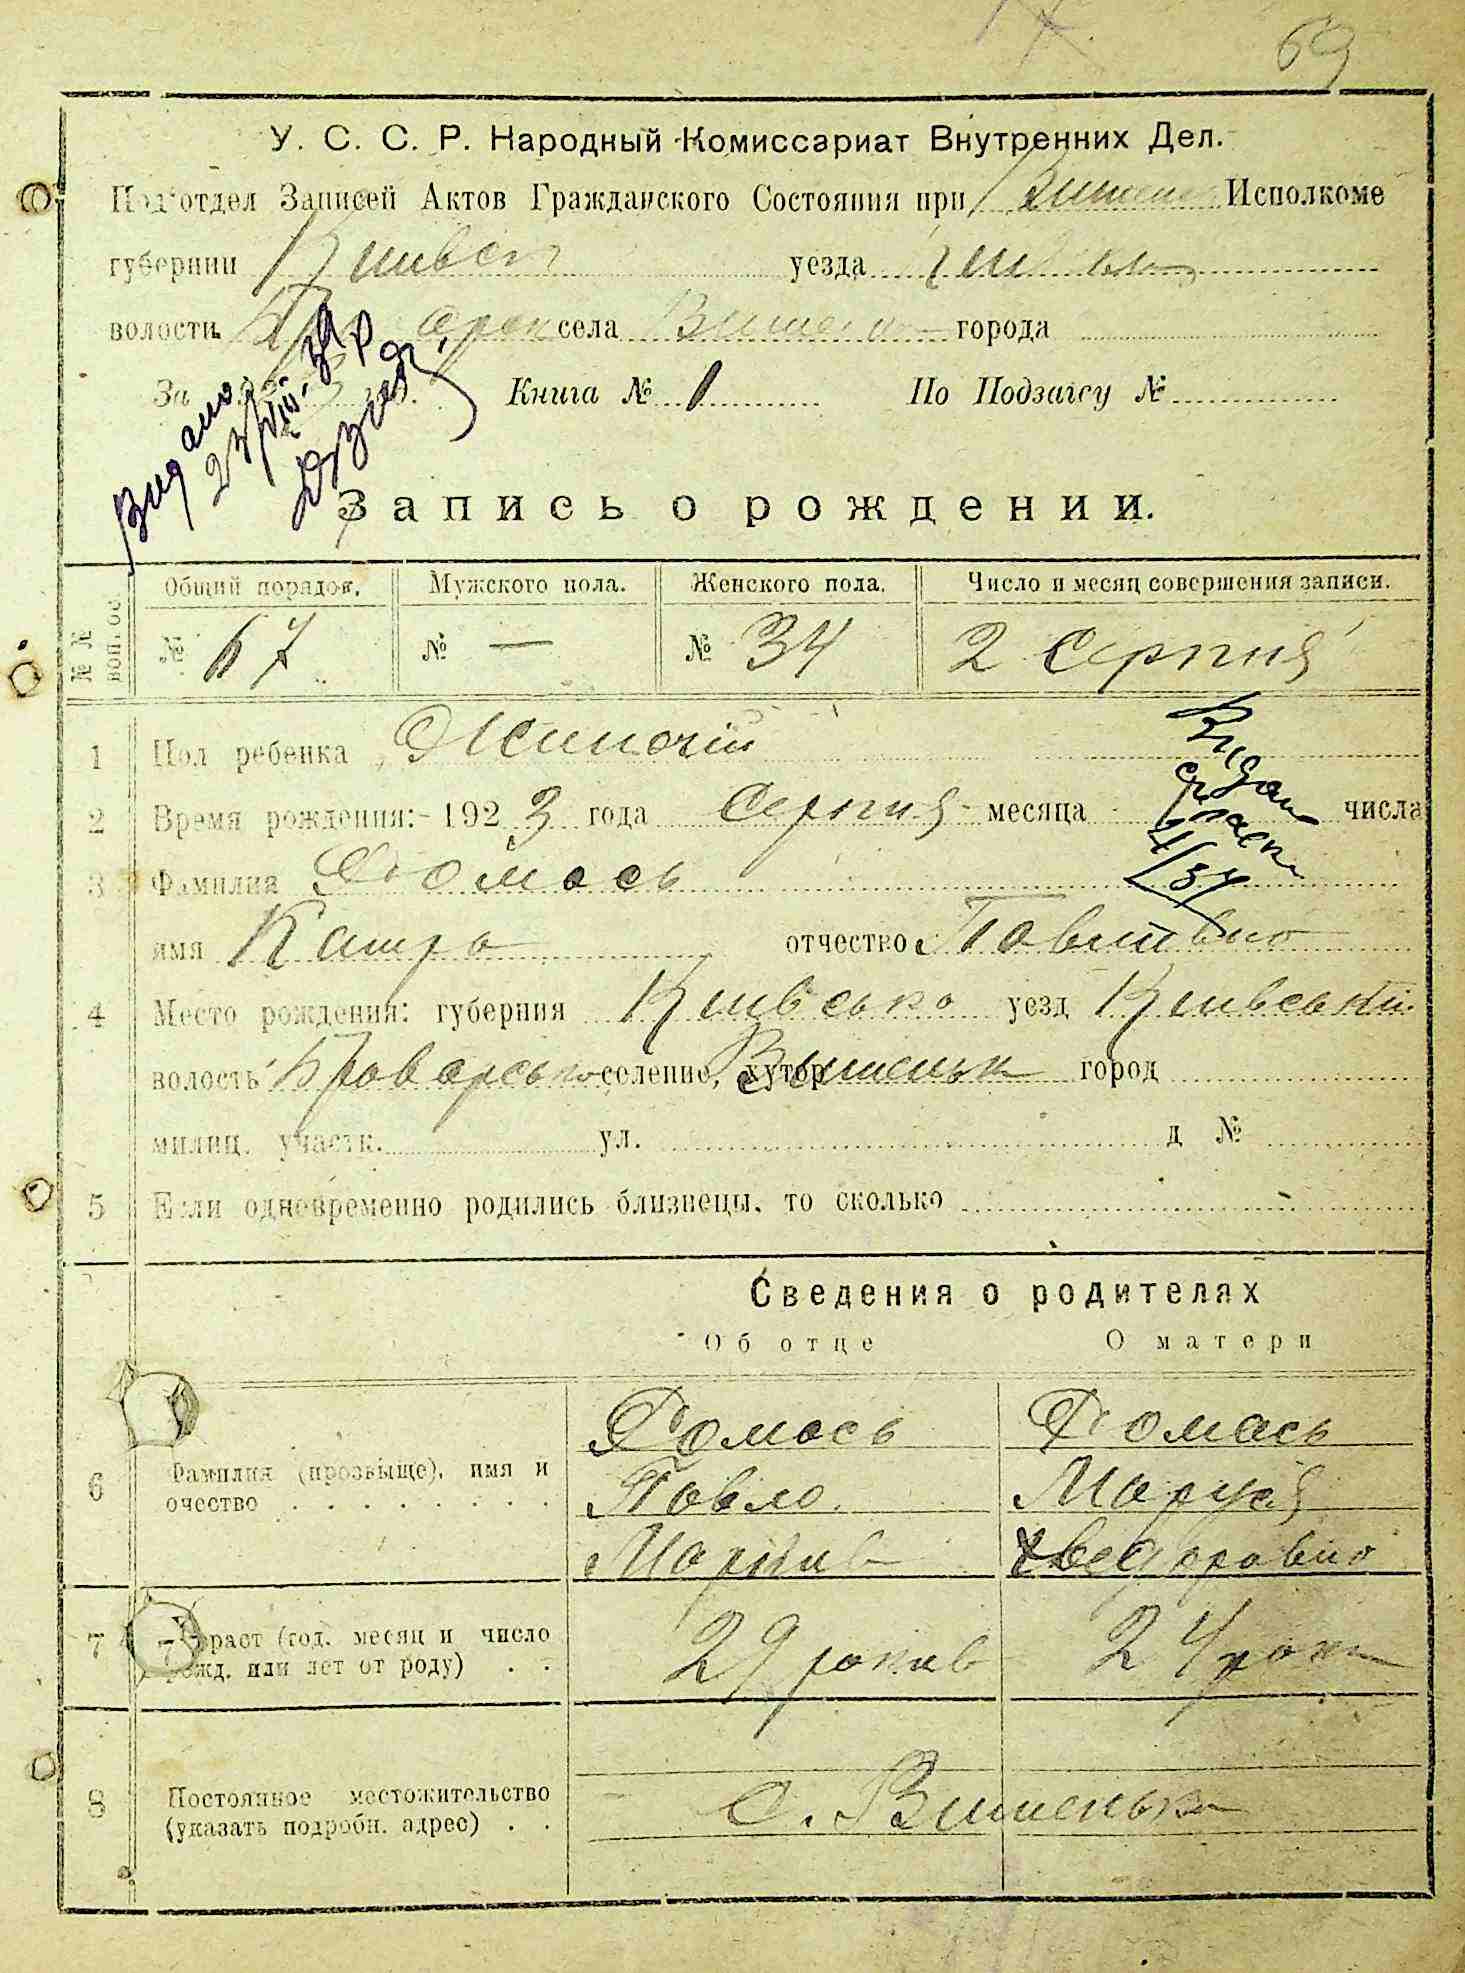 69
У. С. С. Р. Народный Комиссариат Внутренних Дел.
Под'отдел Записей Актов Гражданского Состояния при Исполкоме
губернии Киивсь уезда
волости села города
За Книга № 1 По Подзагсу №
Видано
Запись о рождении.
№ № воп. ос. Общий порядок. Мужского пола. Женского пола. Число и месяц совершения записи.
№ 67 № — № 34 2 Серпня
1 Пол ребенка Жиночій
Видан
2 Время рождения:- 1923 года Серпня месяца числа
3 Фамилия Хомась
имя отчество Павливна
4 Место рождения: губерния Киивська уезд Киивський
волость Броварська селение, хутор Вишеньки город
милиц. участк. ул. д №
5 Если одновременно родились близнецы, то сколько
Сведения о родителях
Об отце О матери
Хомась Хомась
6 Фамилия (прозвыще), имя и очество Павло Маруся
Хведоровна
7 Возраст (год. месяц и число рожд. или лет от роду) 29 рокив 24 роки
8 Постоянное местожительство (указать подробн. адрес) с. Вишеньки